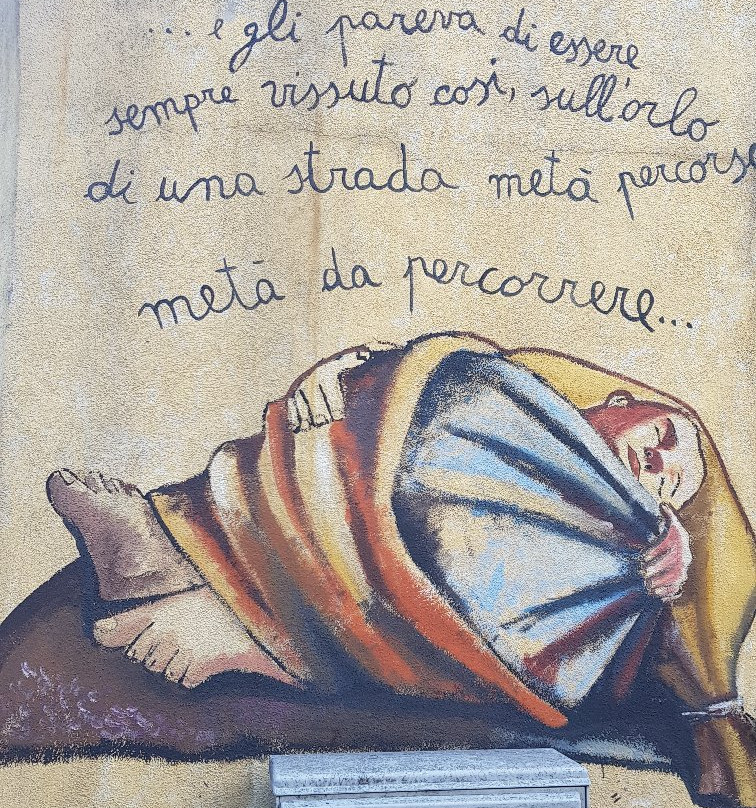 ... e gli pareva di essere
sempre vissuto così, sull'orlo
di una strada metà percorsa
metà da percorrere...